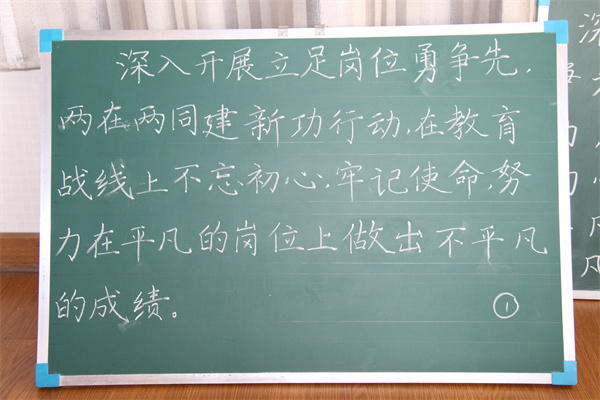 深入开展立足岗位勇争先,
两在两同建新功行动,在教育
战线上不忘初心,牢记使命,努
力在平凡的岗位上做出不平凡
的成绩。
①